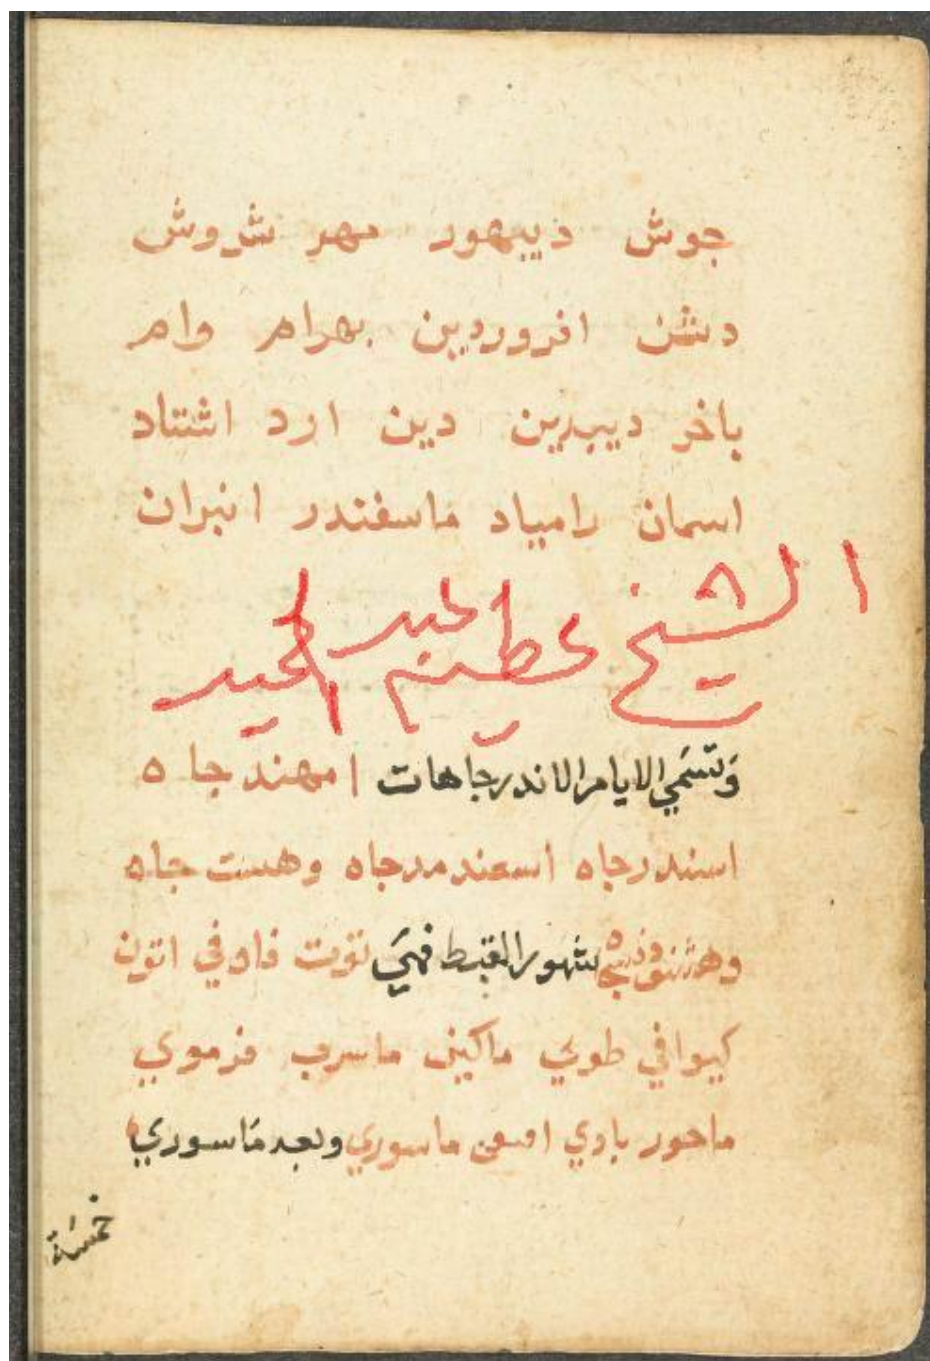 جوش ديبهور مهر شروش
دشن افروردين بهرام وام
باخر ديبدين دين ارد اشتاد
اسمان رامياد ماسفندر انبران
الشيخ عطيه عبد الحميد
وَتسَمي الايام الاندرجاهات اهمندجاه
اسندرجاه اسعندمدجاه وهست جاه
شهور القبط فهيَ توت فاوفي اتور
كيوافي طوبي ماكير ماسرب فرموبي
ماحور باوي افيعي ماسوري وبعد مَاسوري
خمسَة